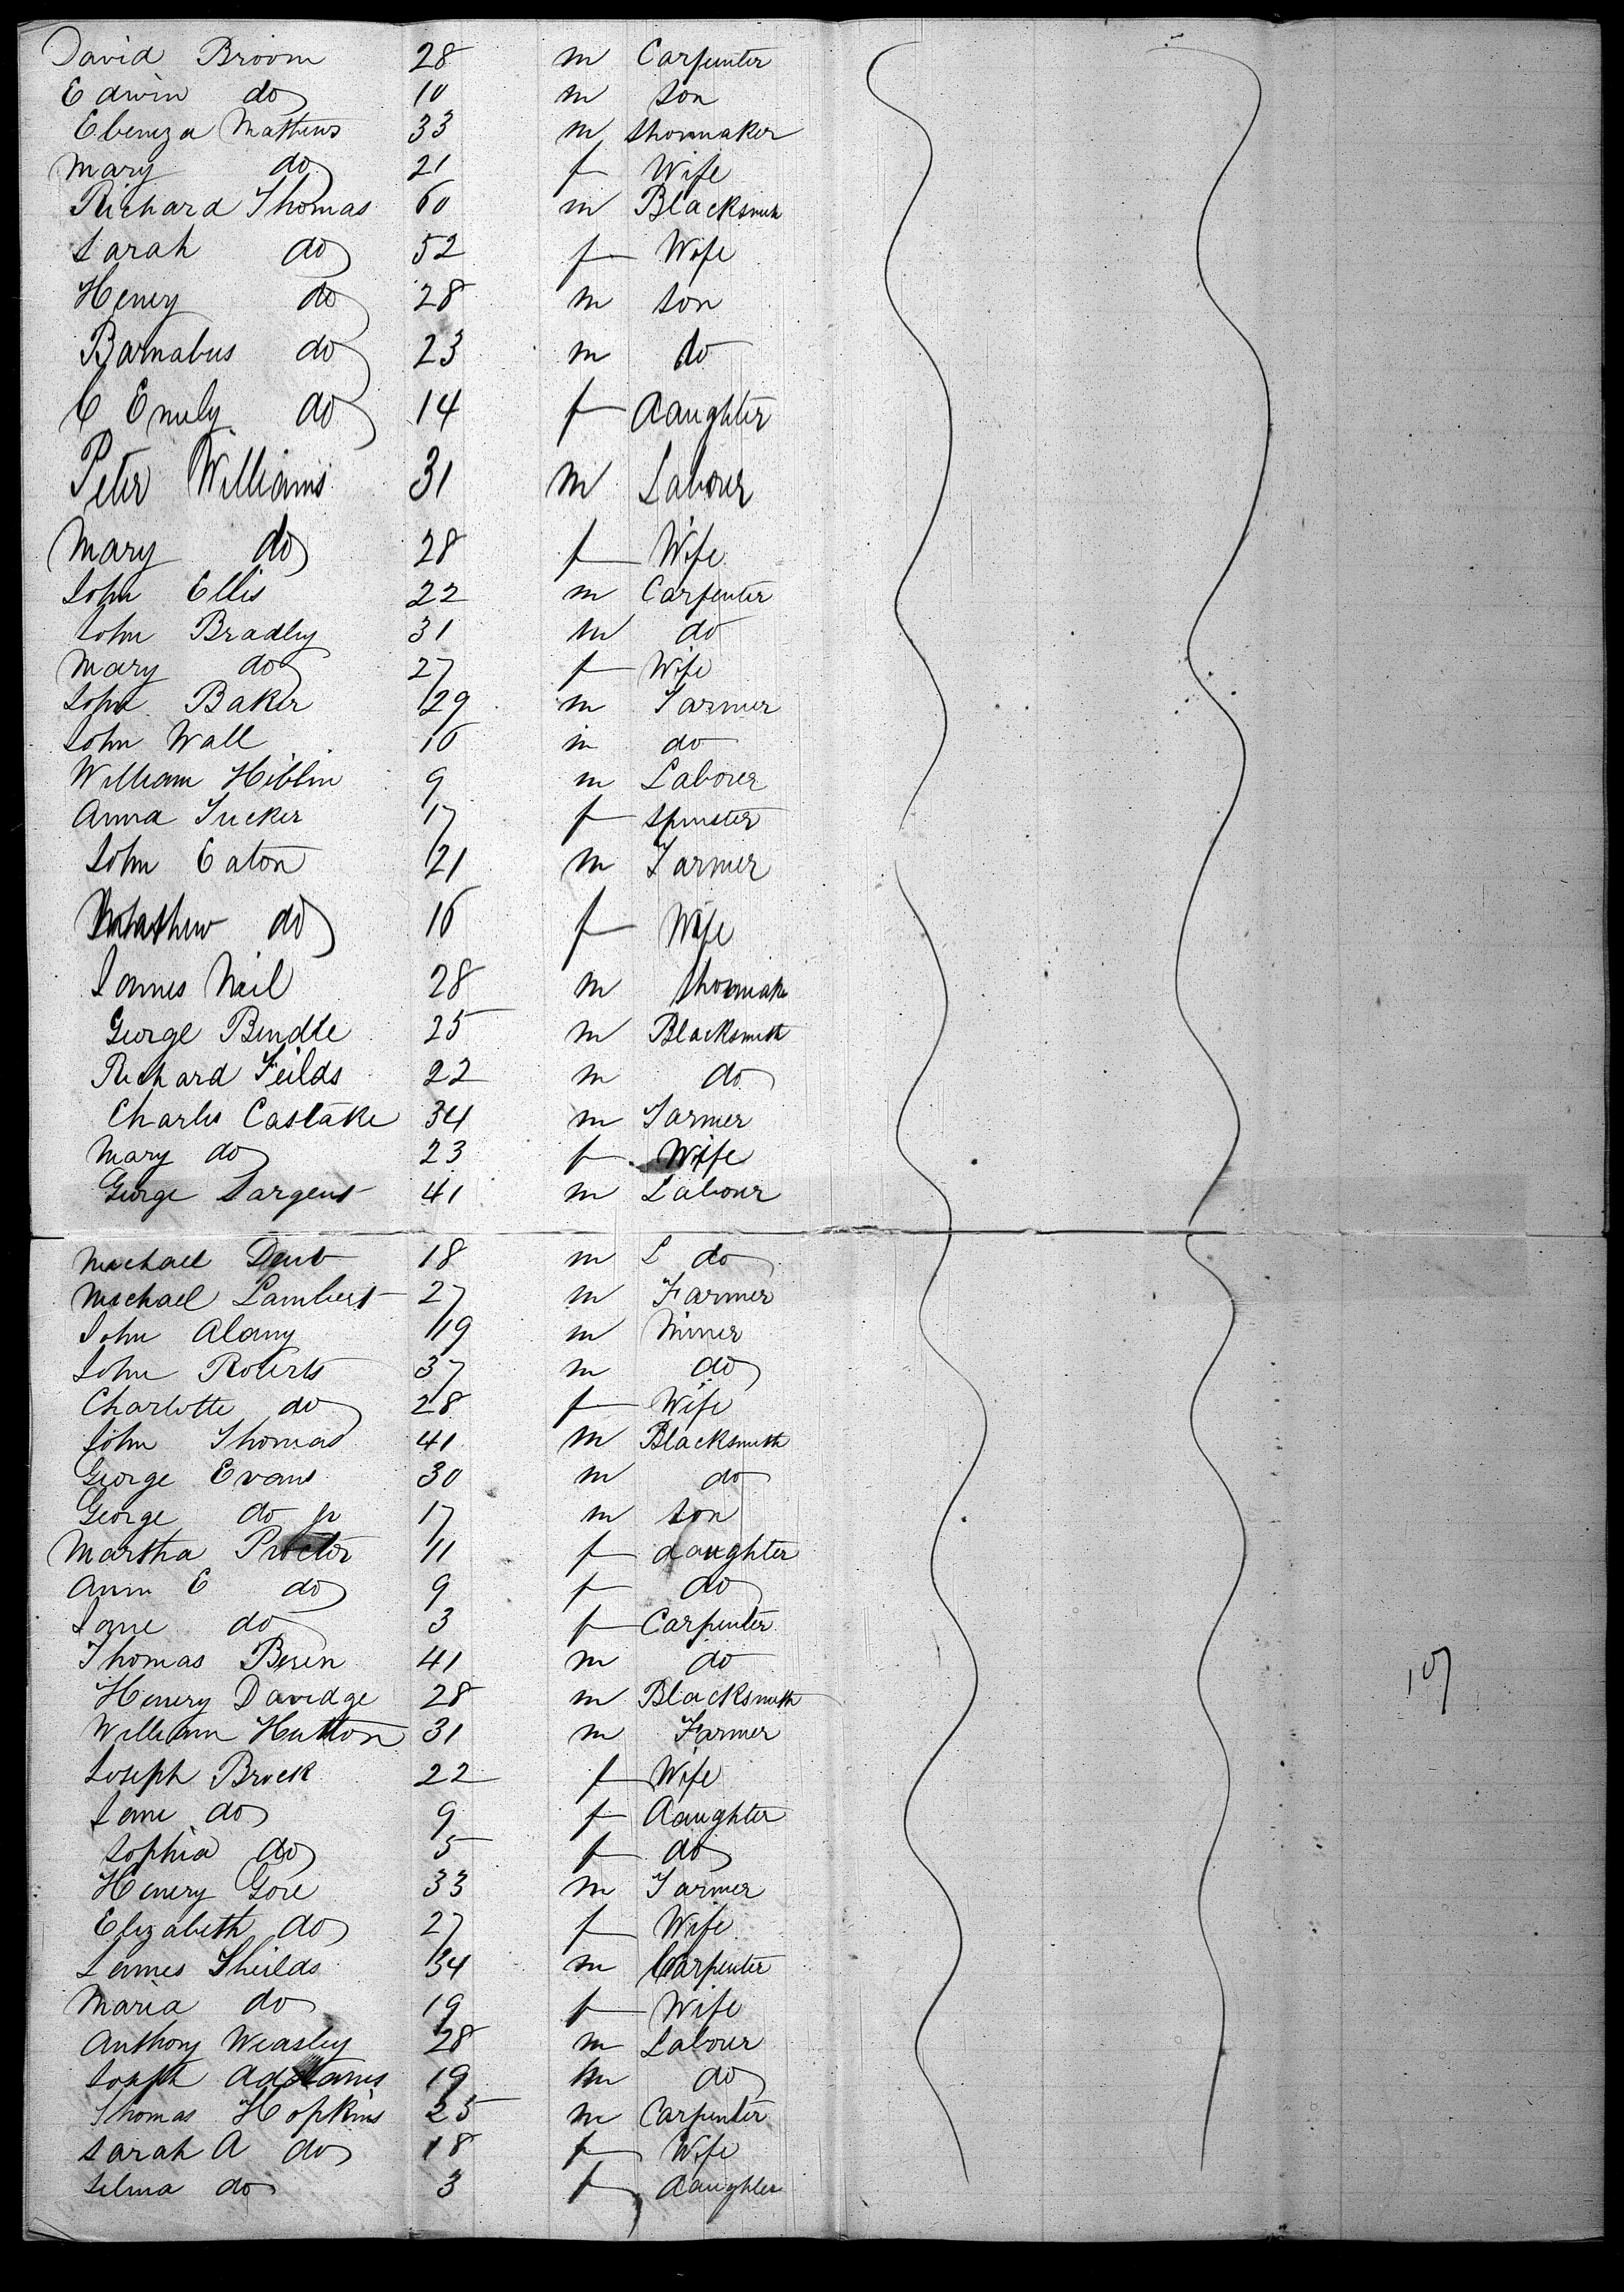 David Broom 28 m Carpenter
Edwin do 10 m son
Ebeneza Mathews 33 m shoemaker
Mary do 21 f Wife
Richard Thomas 60 m Blacksmith
Sarah do 52 f Wife
Henery do 28 m son
Barnabus do 23 m do
C Emily do 14 f daughter
Peter Williams 31 m Labourer
Mary do 28 f Wife
John Ellis 22 m Carpenter
John Bradley 31 m do
Mary do 27 f Wife
John Baker 29 m Farmer
John Wall 16 m do
William Hiblin 9 m Labourer
Anna Tucker 17 f Spinster
John Eaton 21 m Farmer
Mathew do 16 f Wife
James Neil 28 m Shoemaker
George Bendle 25 m Blacksmith
Richard Feilds 22 m do
Charles Castake 34 m Farmer
Mary do 23 f Wife
George Sargent 41 m Labour
Michael Dent 18 m L do
Michael Lambert 27 m Farmer
John Alany 19 m Miner
John Roberts 37 m do
Charlotte do 28 f Wife
John Thomas 41 m Blacksmith
George Evans 30 m do
George do jr 17 m son
Martha Proctor 11 f daughter
Ann E do 9 f do
Jane do 3 f Carpenter
Thomas Beren 41 m do
Henery Davidge 28 m Blacksmith
William Hutton 31 m Farmer
Joseph Brock 22 f Wife
Jane do 9 f daughter
Sophia do 5 f do
Henery Gore 33 m Farmer
Elizabeth do 27 f Wife
James Sheilds 34 m Carpenter
Maria do 19 f Wife
Anthony Weasley 28 m Labour
Joseph Adams 19 m do
Thomas Hopkins 25 m Carpenter
Sarah A do 18 f Wife
Selma do 3 f daughter
107